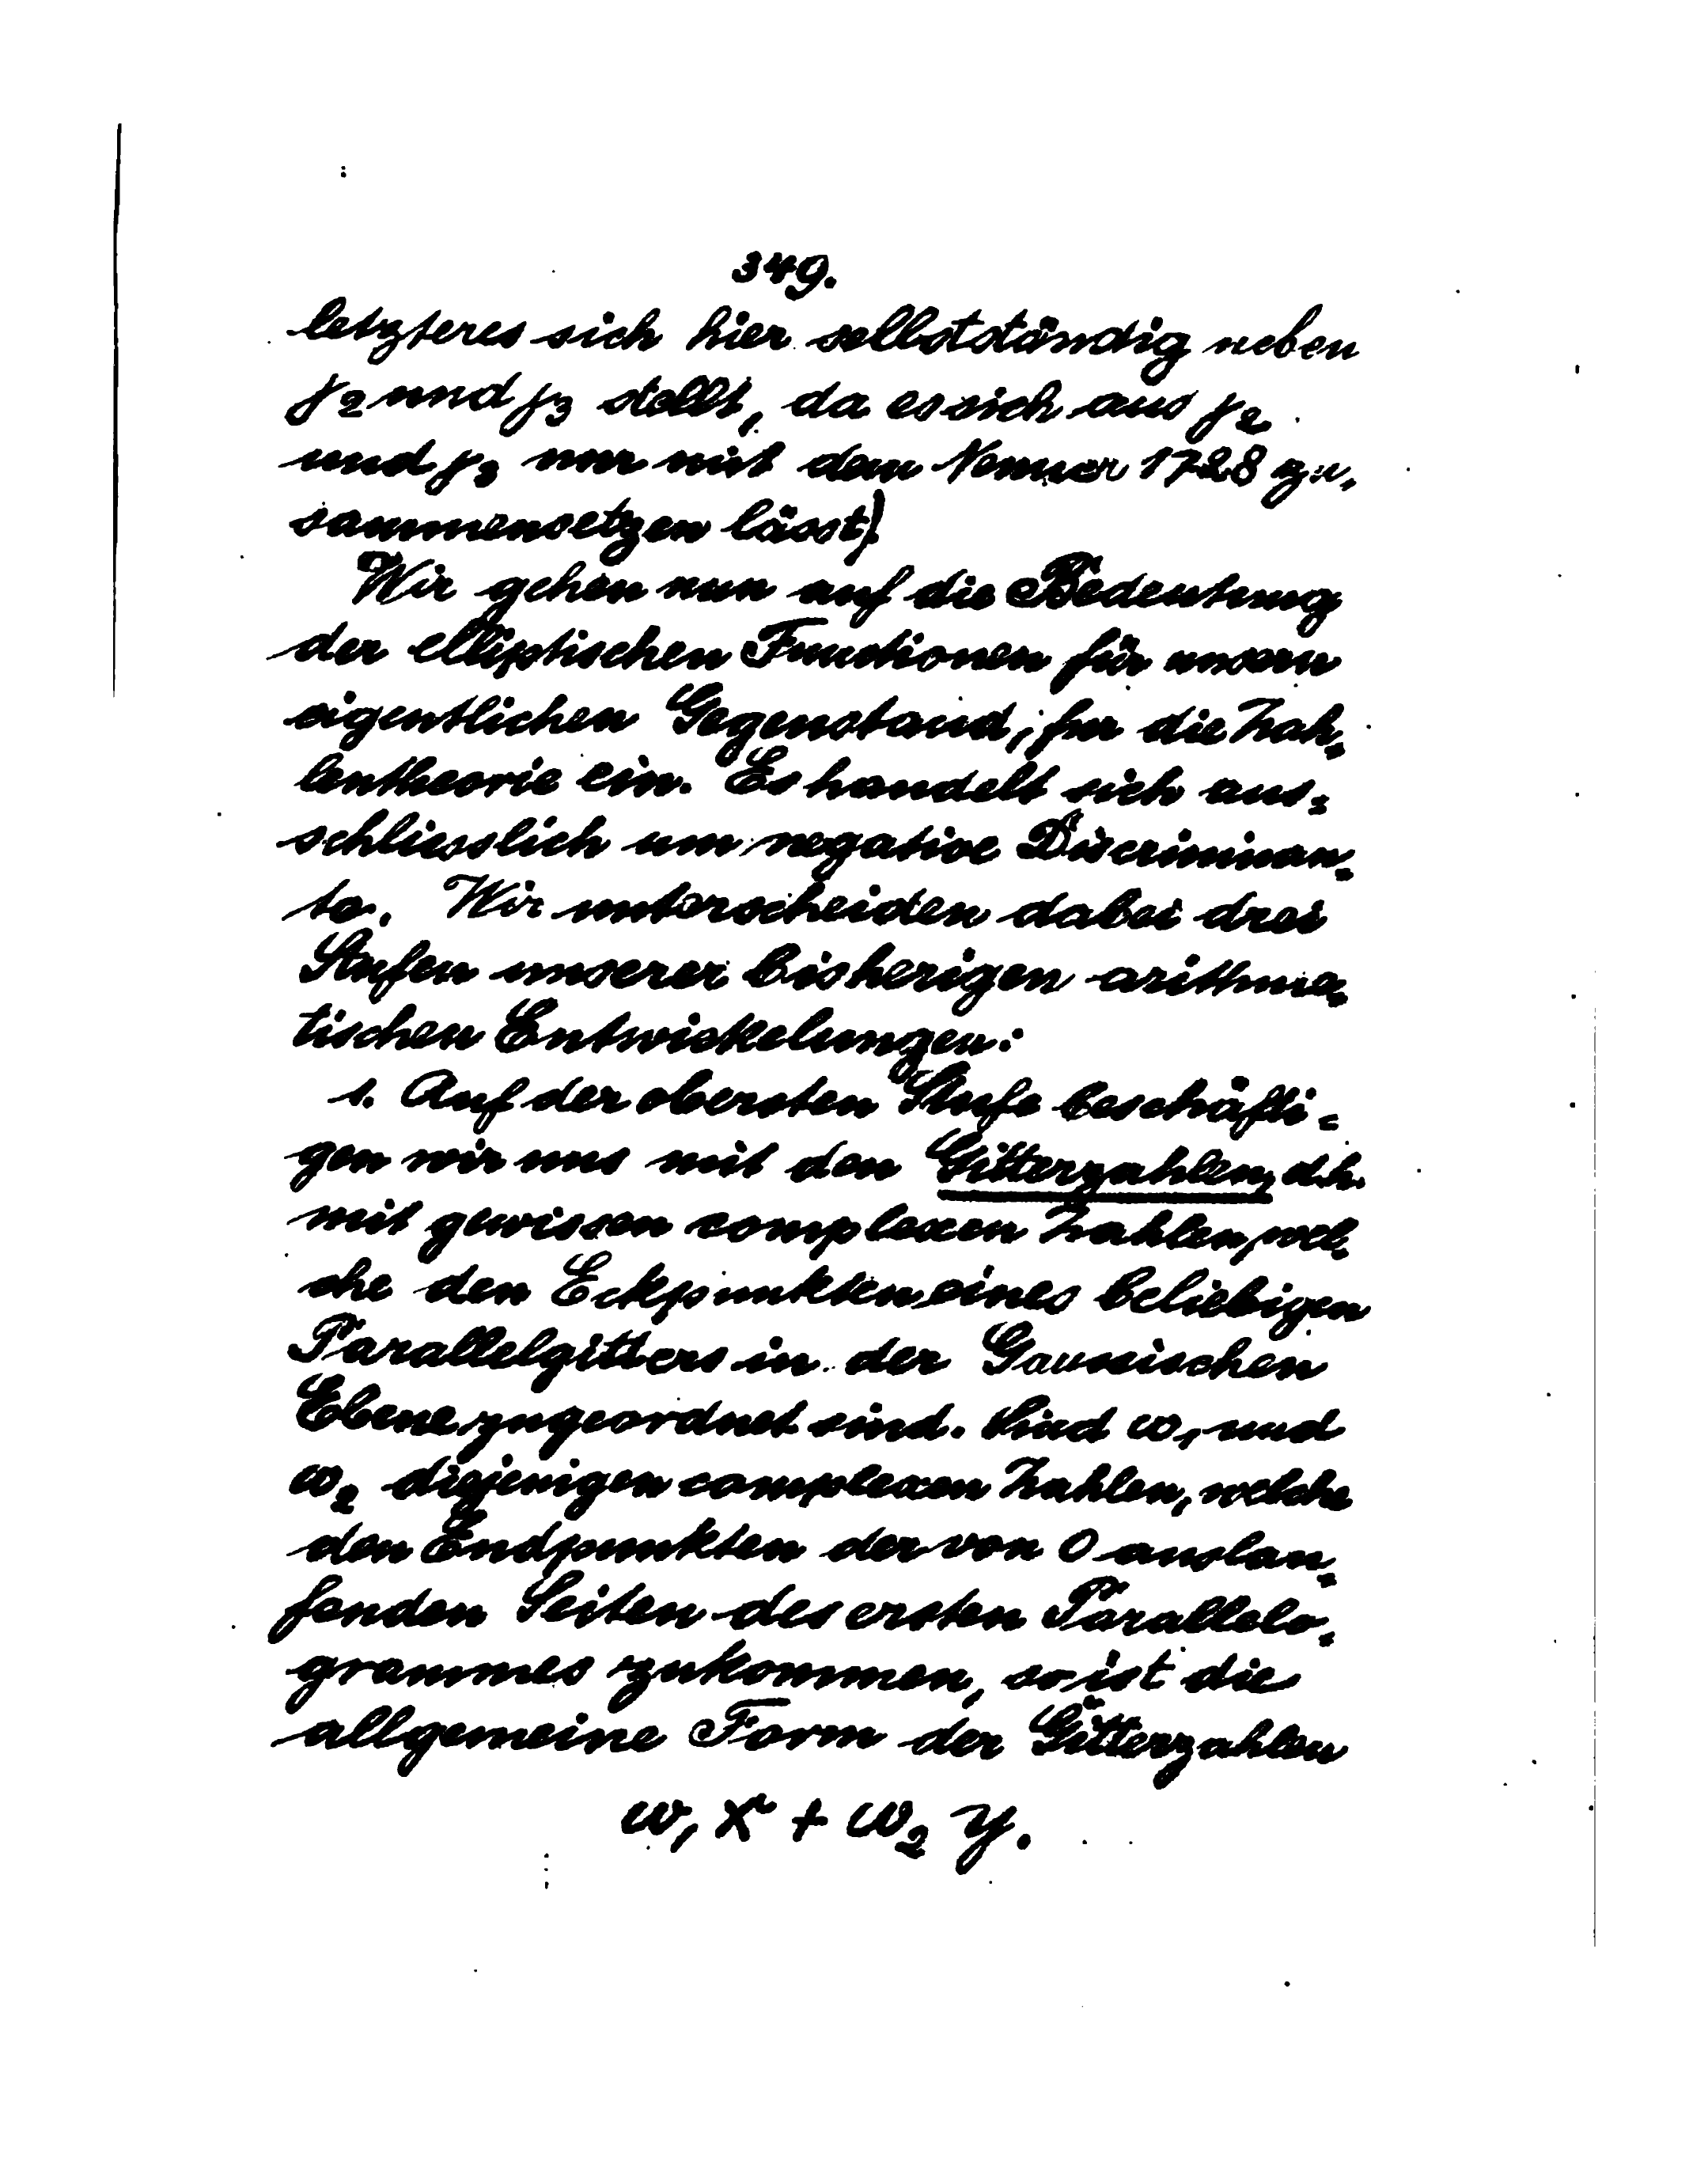 349.
letzteres sich hier selbstständig neben
γ₂ und γ₃ stellt, da es sich aus γ₂
und γ₃ nur mit dem Nenner 1728 zu-
sammensetzen lässt)
Wir gehen nun auf die Bedeutung
der elliptischen Functionen für unsern
eigentlichen Gegenstand, für die Zah-
lentheorie ein. Es handelt sich aus-
schliesslich um negative Discriminan-
te. Wir unterscheiden dabei drei
Stufen unserer bisherigen arithme-
tischen Entwickelungen:
1. Auf der obersten Stufe beschäfti-
gen wir uns mit den Gitterzahlen, d.h.
mit gewissen complexen Zahlen, wel-
che den Eckpunkten eines beliebigen
Parallelgitters in der Gaussischen
Ebene zugeordnet sind. Sind ω₁ und
ω₂ diejenigen complexen Zahlen, welche
den Endpunkten der von O auslau-
fenden Seiten des ersten Parallelo-
grammes zukommen, so ist die
allgemeine Form der Gitterzahlen
ω₁ x + ω₂ y.